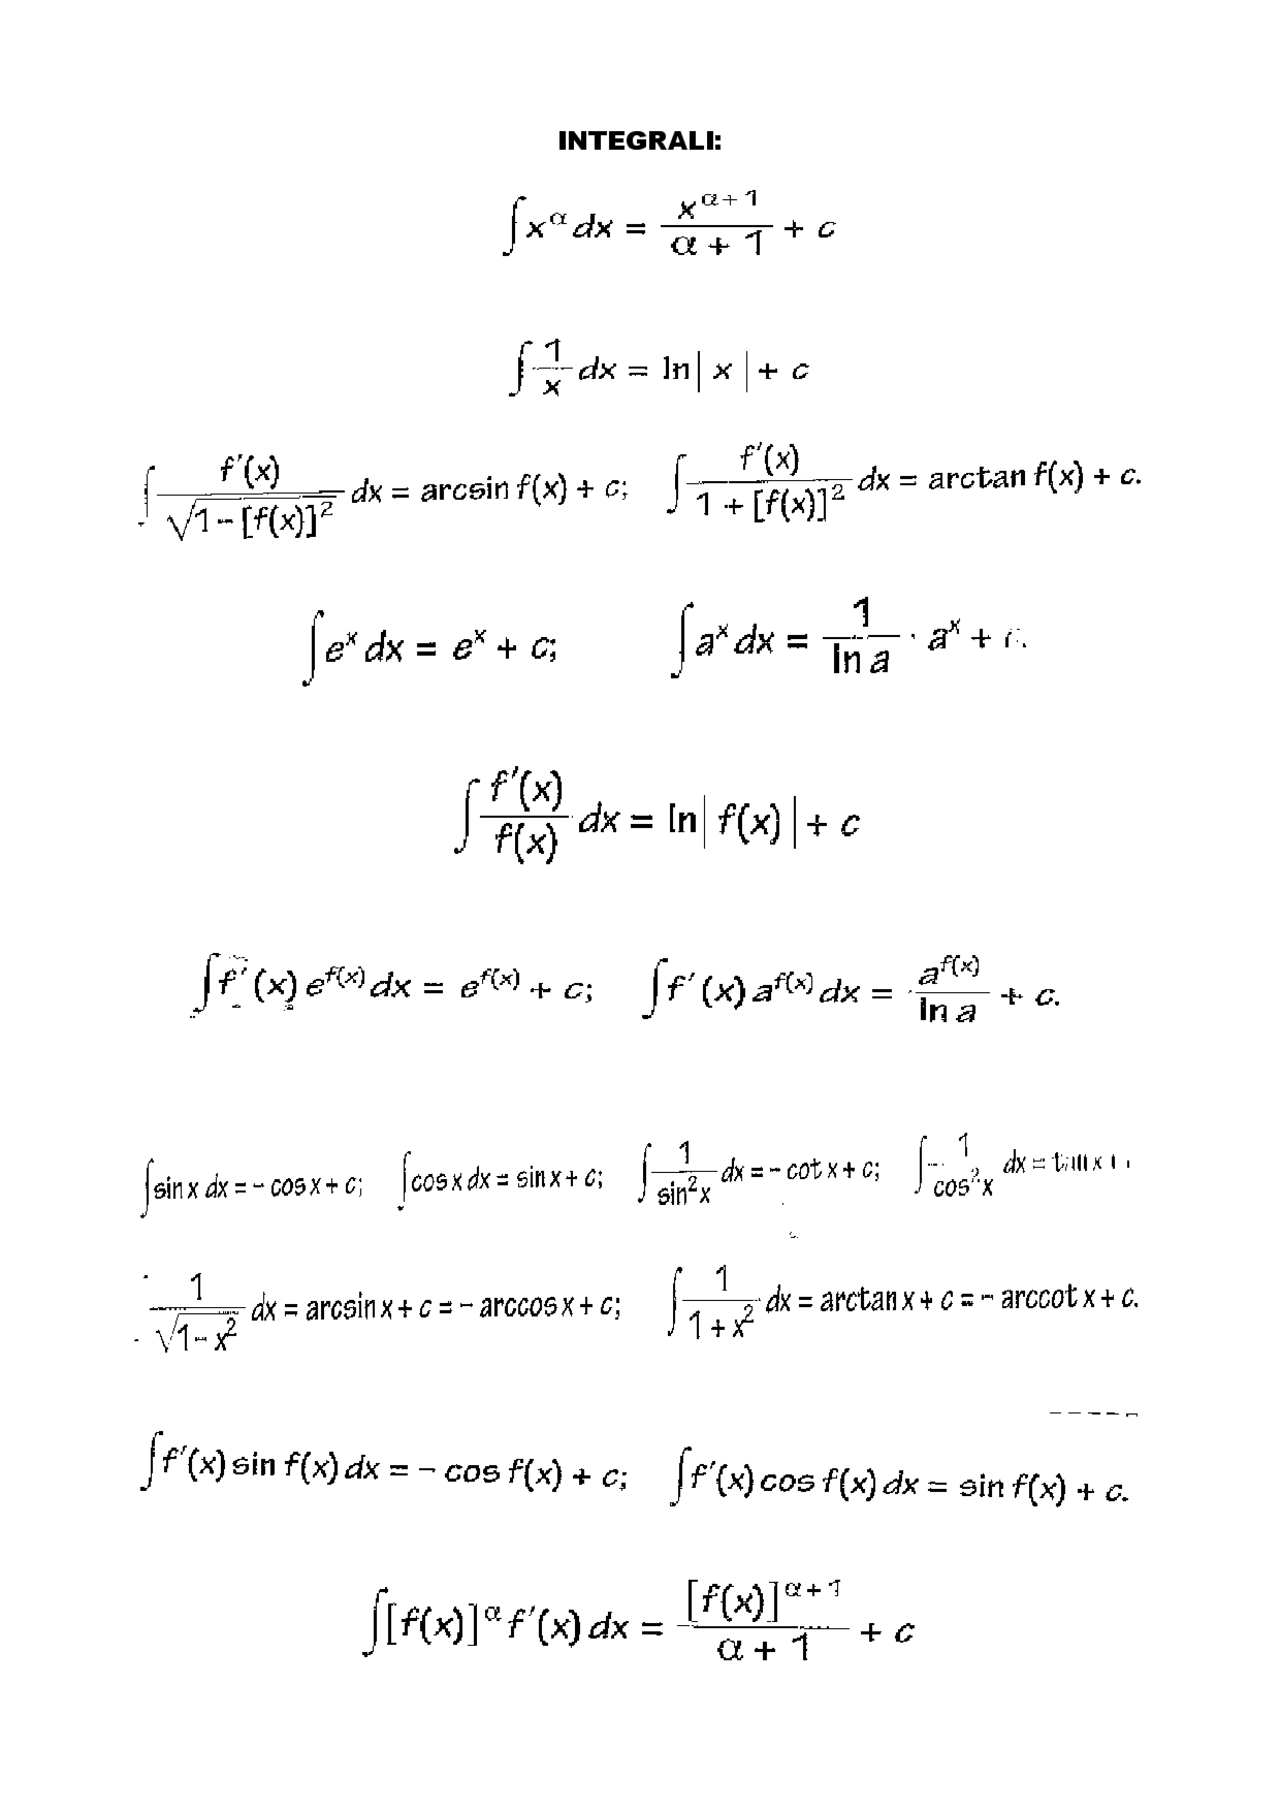 INTEGRALI:
∫ x^α dx = x^(α+1) / (α + 1) + c
∫ 1/x dx = ln| x | + c
∫ f'(x) / √(1 - [f(x)]^2) dx = arcsin f(x) + c; ∫ f'(x) / (1 + [f(x)]^2) dx = arctan f(x) + c.
∫ e^x dx = e^x + c; ∫ a^x dx = 1 / ln a · a^x +
∫ f'(x) / f(x) dx = ln| f(x) | + c
∫ f'(x) e^f(x) dx = e^f(x) + c; ∫ f'(x) a^f(x) dx = a^f(x) / ln a + c.
∫ sin x dx = - cos x + c; ∫ cos x dx = sin x + c; ∫ 1 / sin^2 x dx = - cot x + c; ∫ 1 / cos^2 x dx = tan x
1 / √(1 - x^2) dx = arcsin x + c = - arccos x + c; ∫ 1 / (1 + x^2) dx = arctan x + c = - arccot x + c.
∫ f'(x) sin f(x) dx = - cos f(x) + c; ∫ f'(x) cos f(x) dx = sin f(x) + c.
∫ [f(x)]^α f'(x) dx = [f(x)]^(α+1) / (α + 1) + c